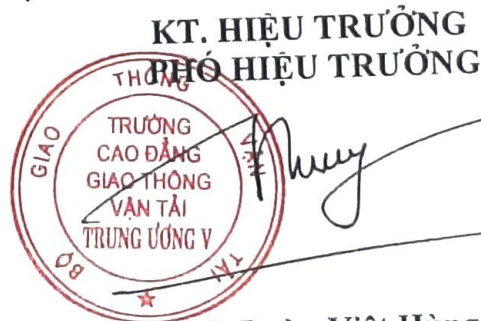 KT. HIỆU TRƯỞNG
PHÓ HIỆU TRƯỞNG
BỘ GIAO THÔNG VẬN TẢI
TRƯỜNG
CAO ĐẲNG
GIAO THÔNG
VẬN TẢI
TRUNG ƯƠNG V
Việt Hùng